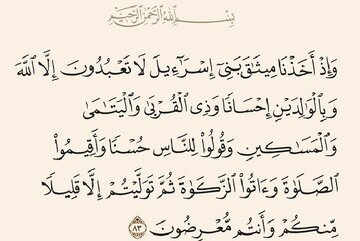 بِسْمِ اللَّهِ الرَّحْمَٰنِ الرَّحِيمِ
وَإِذْ أَخَذْنَا مِيثَٰقَ بَنِىٓ إِسْرَٰٓءِيلَ لَا تَعْبُدُونَ إِلَّا ٱللَّهَ
وَبِٱلْوَٰلِدَيْنِ إِحْسَانًا وَذِى ٱلْقُرْبَىٰ وَٱلْيَتَٰمَىٰ
وَٱلْمَسَٰكِينِ وَقُولُوا۟ لِلنَّاسِ حُسْنًا وَأَقِيمُوا۟
ٱلصَّلَوٰةَ وَءَاتُوا۟ ٱلزَّكَوٰةَ ثُمَّ تَوَلَّيْتُمْ إِلَّا قَلِيلًا
مِّنكُمْ وَأَنتُم مُّعْرِضُونَ ٨٣